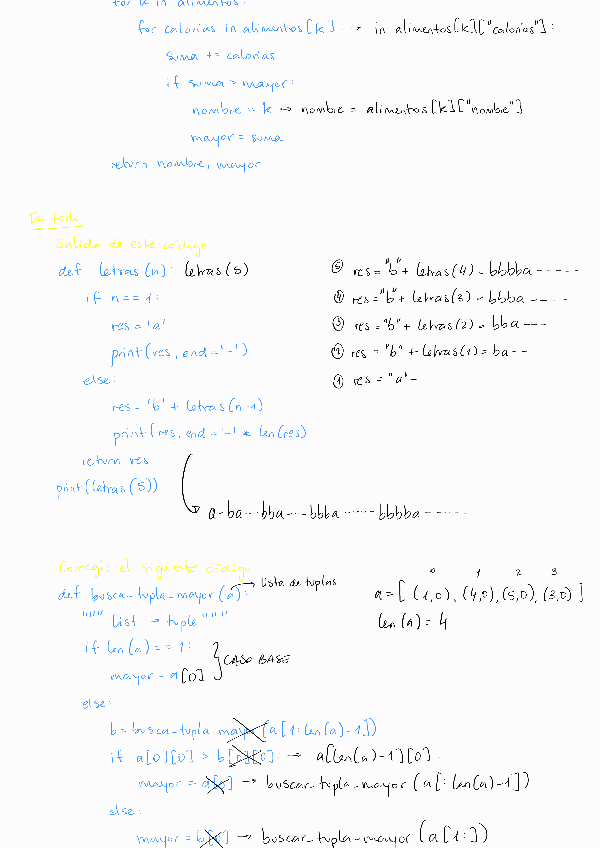 for k in alimentos:
for calorias in alimentos[k] → in alimentos[k]["calorias"]:
suma += calorias
if suma > mayor:
nombre = k → nombre = alimentos[k]["nombre"]
mayor = suma
return nombre, mayor
De todo
Salida de este código
def letras(n): letras(5)
if n == 1:
res = 'a'
print(res, end = '-')
else:
res = 'b' + letras(n-1)
print(res, end = '-' * len(res)
return res
print(letras(5))
⑤ res = "b" + letras(4) = bbbba -----
④ res = "b" + letras(3) = bbba ----
③ res = "b" + letras(2) = bba ---
② res = "b" + letras(1) = ba --
① res = "a" -
a-ba--bba---bbba----bbbba-----
Corregir el siguiente código
def busca_tupla_mayor(a): → lista de tuplas
""" list → tuple """
if len(a) == 1:
mayor = a[0] } CASO BASE
else:
b = busca_tupla_mayor(a[1:len(a)-1])
if a[0][0] > b[0][0]: → a[len(a)-1][0]
mayor = a[0] → buscar_tupla_mayor(a[:len(a)-1])
else:
mayor = b[0] → buscar_tupla_mayor(a[1:])
0 1 2 3
a = [(1,0), (4,0), (5,0), (3,0)]
len(a) = 4